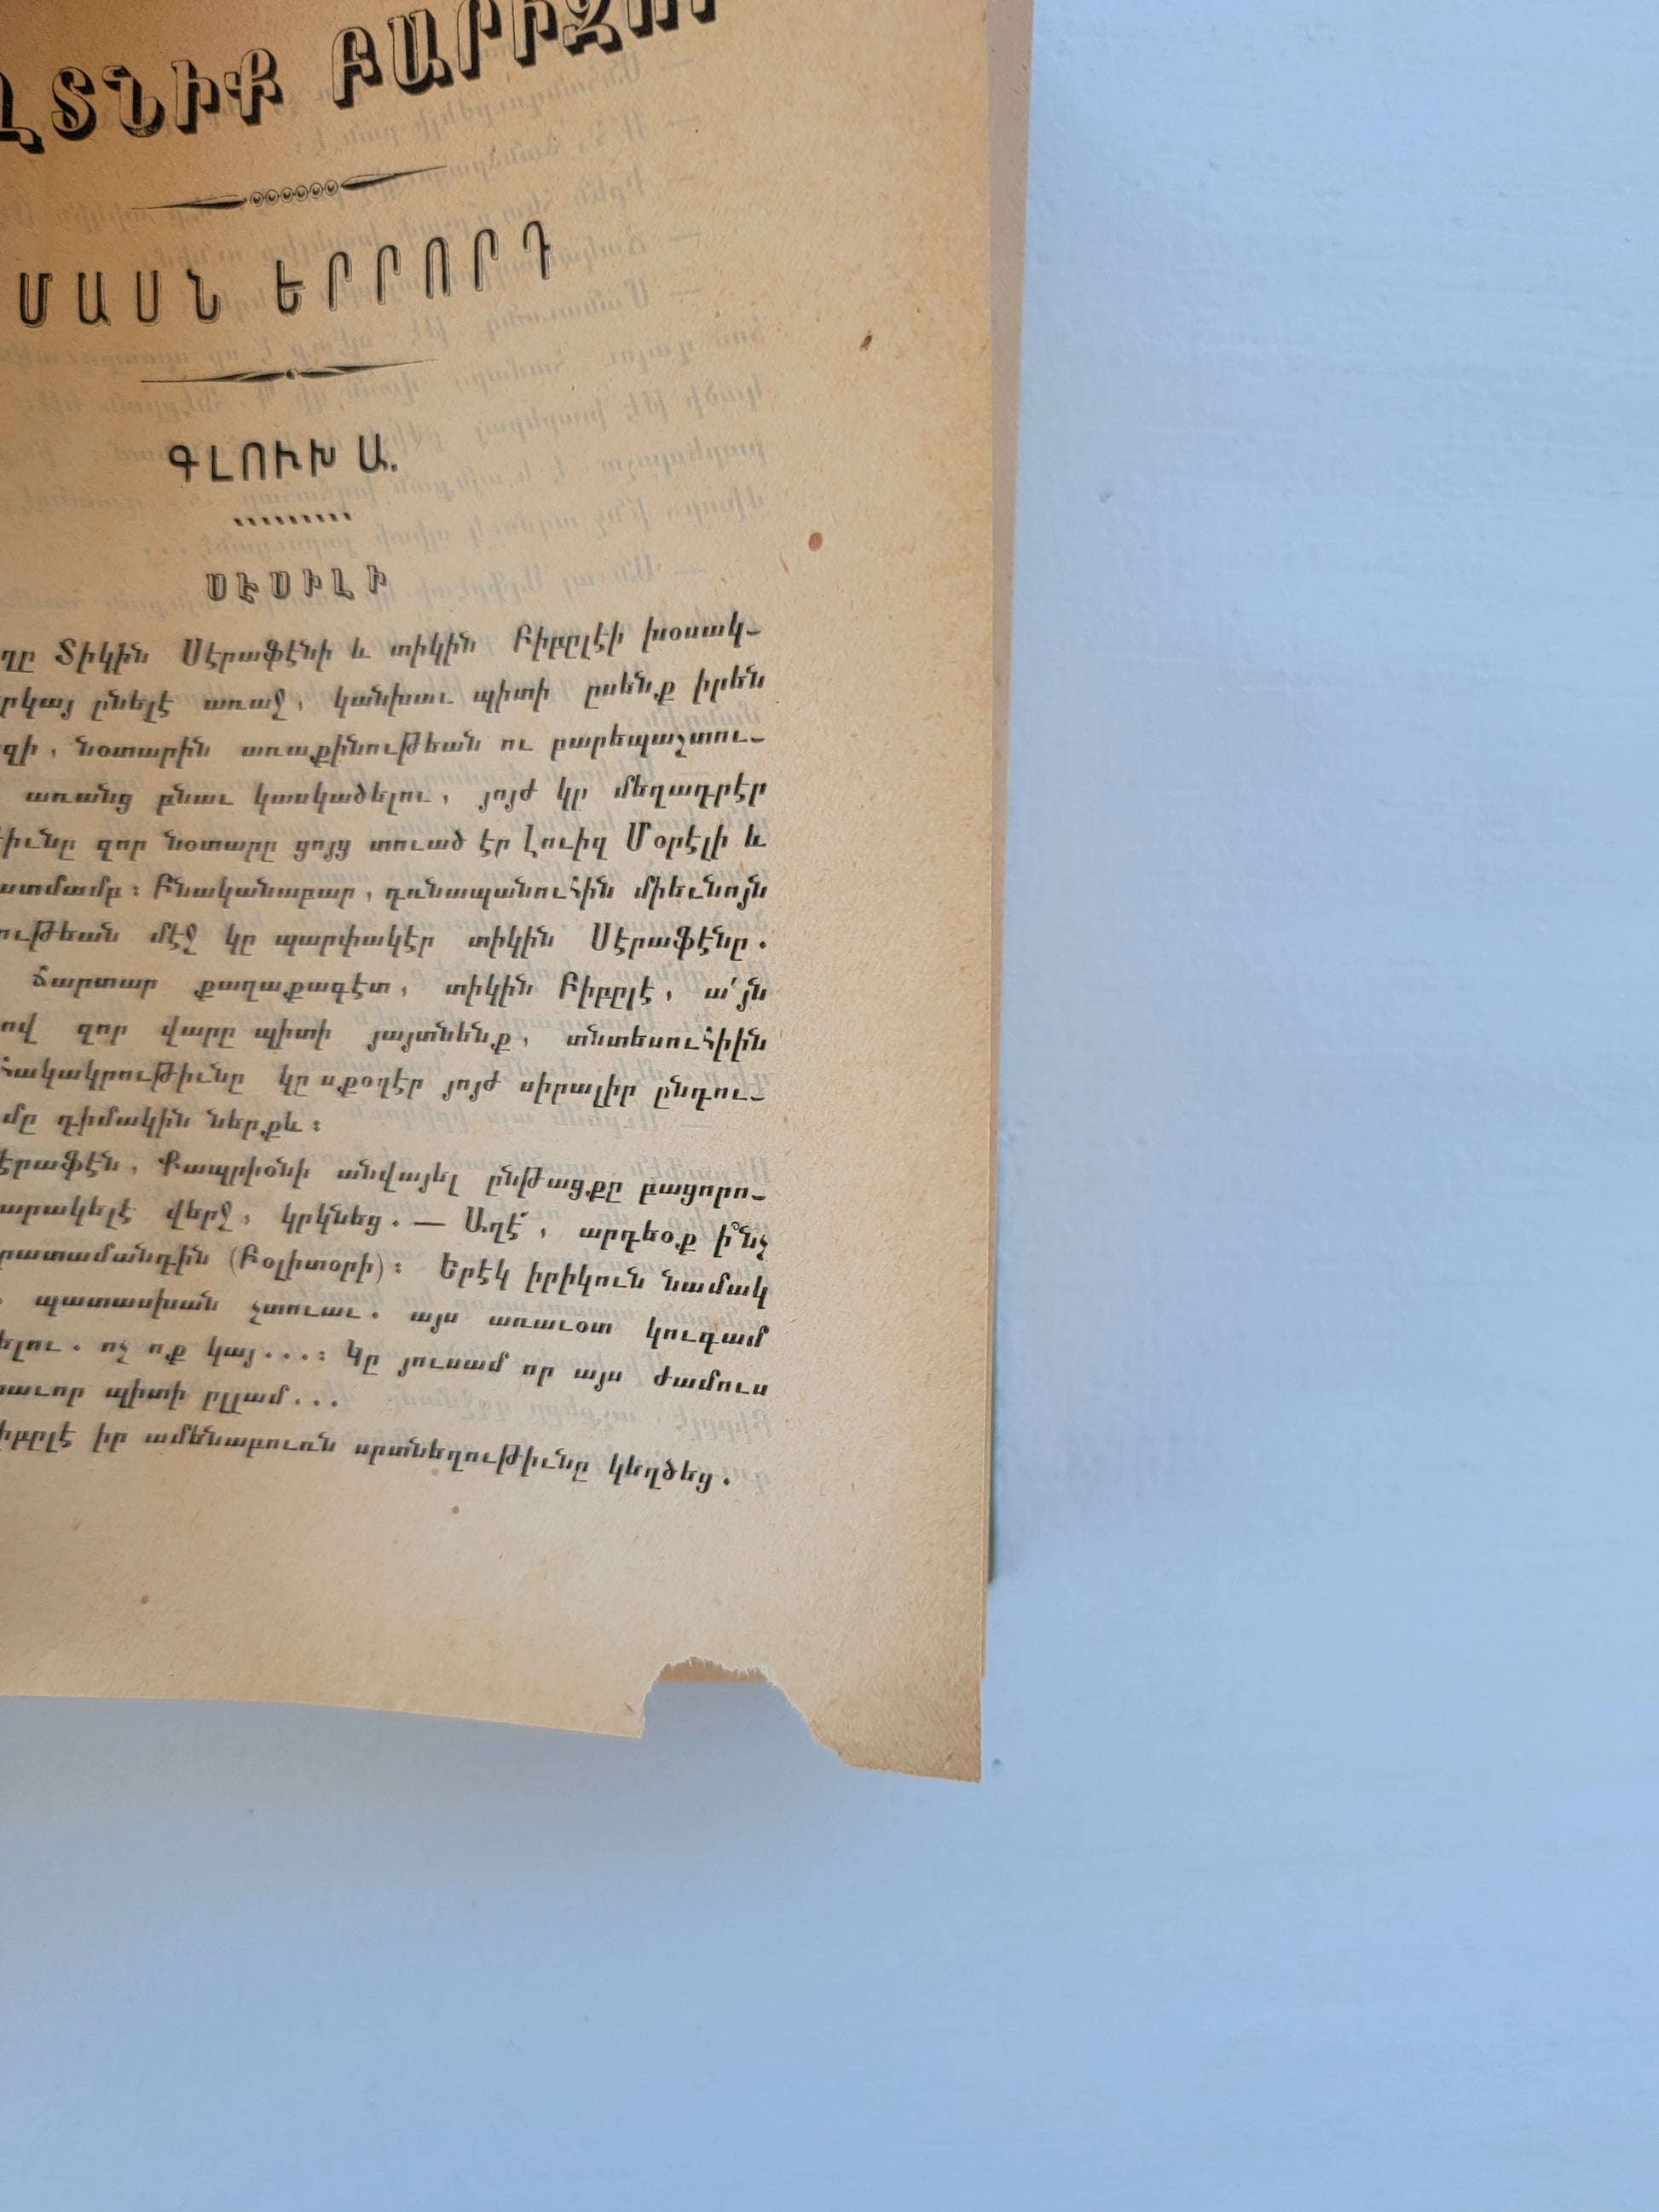 ՂՏՆԻՔ ԲԱՐԻԶՈՒ
ՄԱՍՆ ԵՐՐՈՐԴ
ԳԼՈՒԽ Ա.
ՍԷՍԻԼԻ
ղը Տիկին Սէրաֆէնի և տիկին Բիբըլէի խօսակ–
րկայ ընելէ առաջ, կանխաւ պիտի ըսենք իրեն
զի, նօտարին առաքինութեան ու բարեպաշտու–
առանց բնաւ կասկածելու, յոյժ կը մեղադրէր
իւնը զոր նօտարը ցոյց տուած էր Լուիզ Մօրէլի և
ատմամբ։ Բնականաբար, դռնապանուհին միեւնոյն
ութեան մէջ կը պարփակէր տիկին Սէրաֆէնը.
ճարտար քաղաքագէտ, տիկին Բիբըլէ, ա՛յն
ով զոր վարը պիտի յայտնենք, տնտեսուհիին
հակակրութիւնը կը սքօղէր յոյժ սիրալիր ընդու–
մը դիմակին ներքև։
էրաֆէն, Քապրիօնի անվայել ընթացքը բացորո–
արակելէ վերջ, կրկնեց. — Աղէ՜, արդեօք ի՞նչ
րատամանդին (Բօլիտօրի)։ Երէկ իրիկուն նամակ
պատասխան չտուաւ. այս առաւօտ կուգամ
ելու. ոչ ոք կայ...։ Կը յուսամ որ այս ժամուս
աւոր պիտի ըլլամ...
իբըլէ իր ամենաբուռն սրտնեղութիւնը կեղծեց.